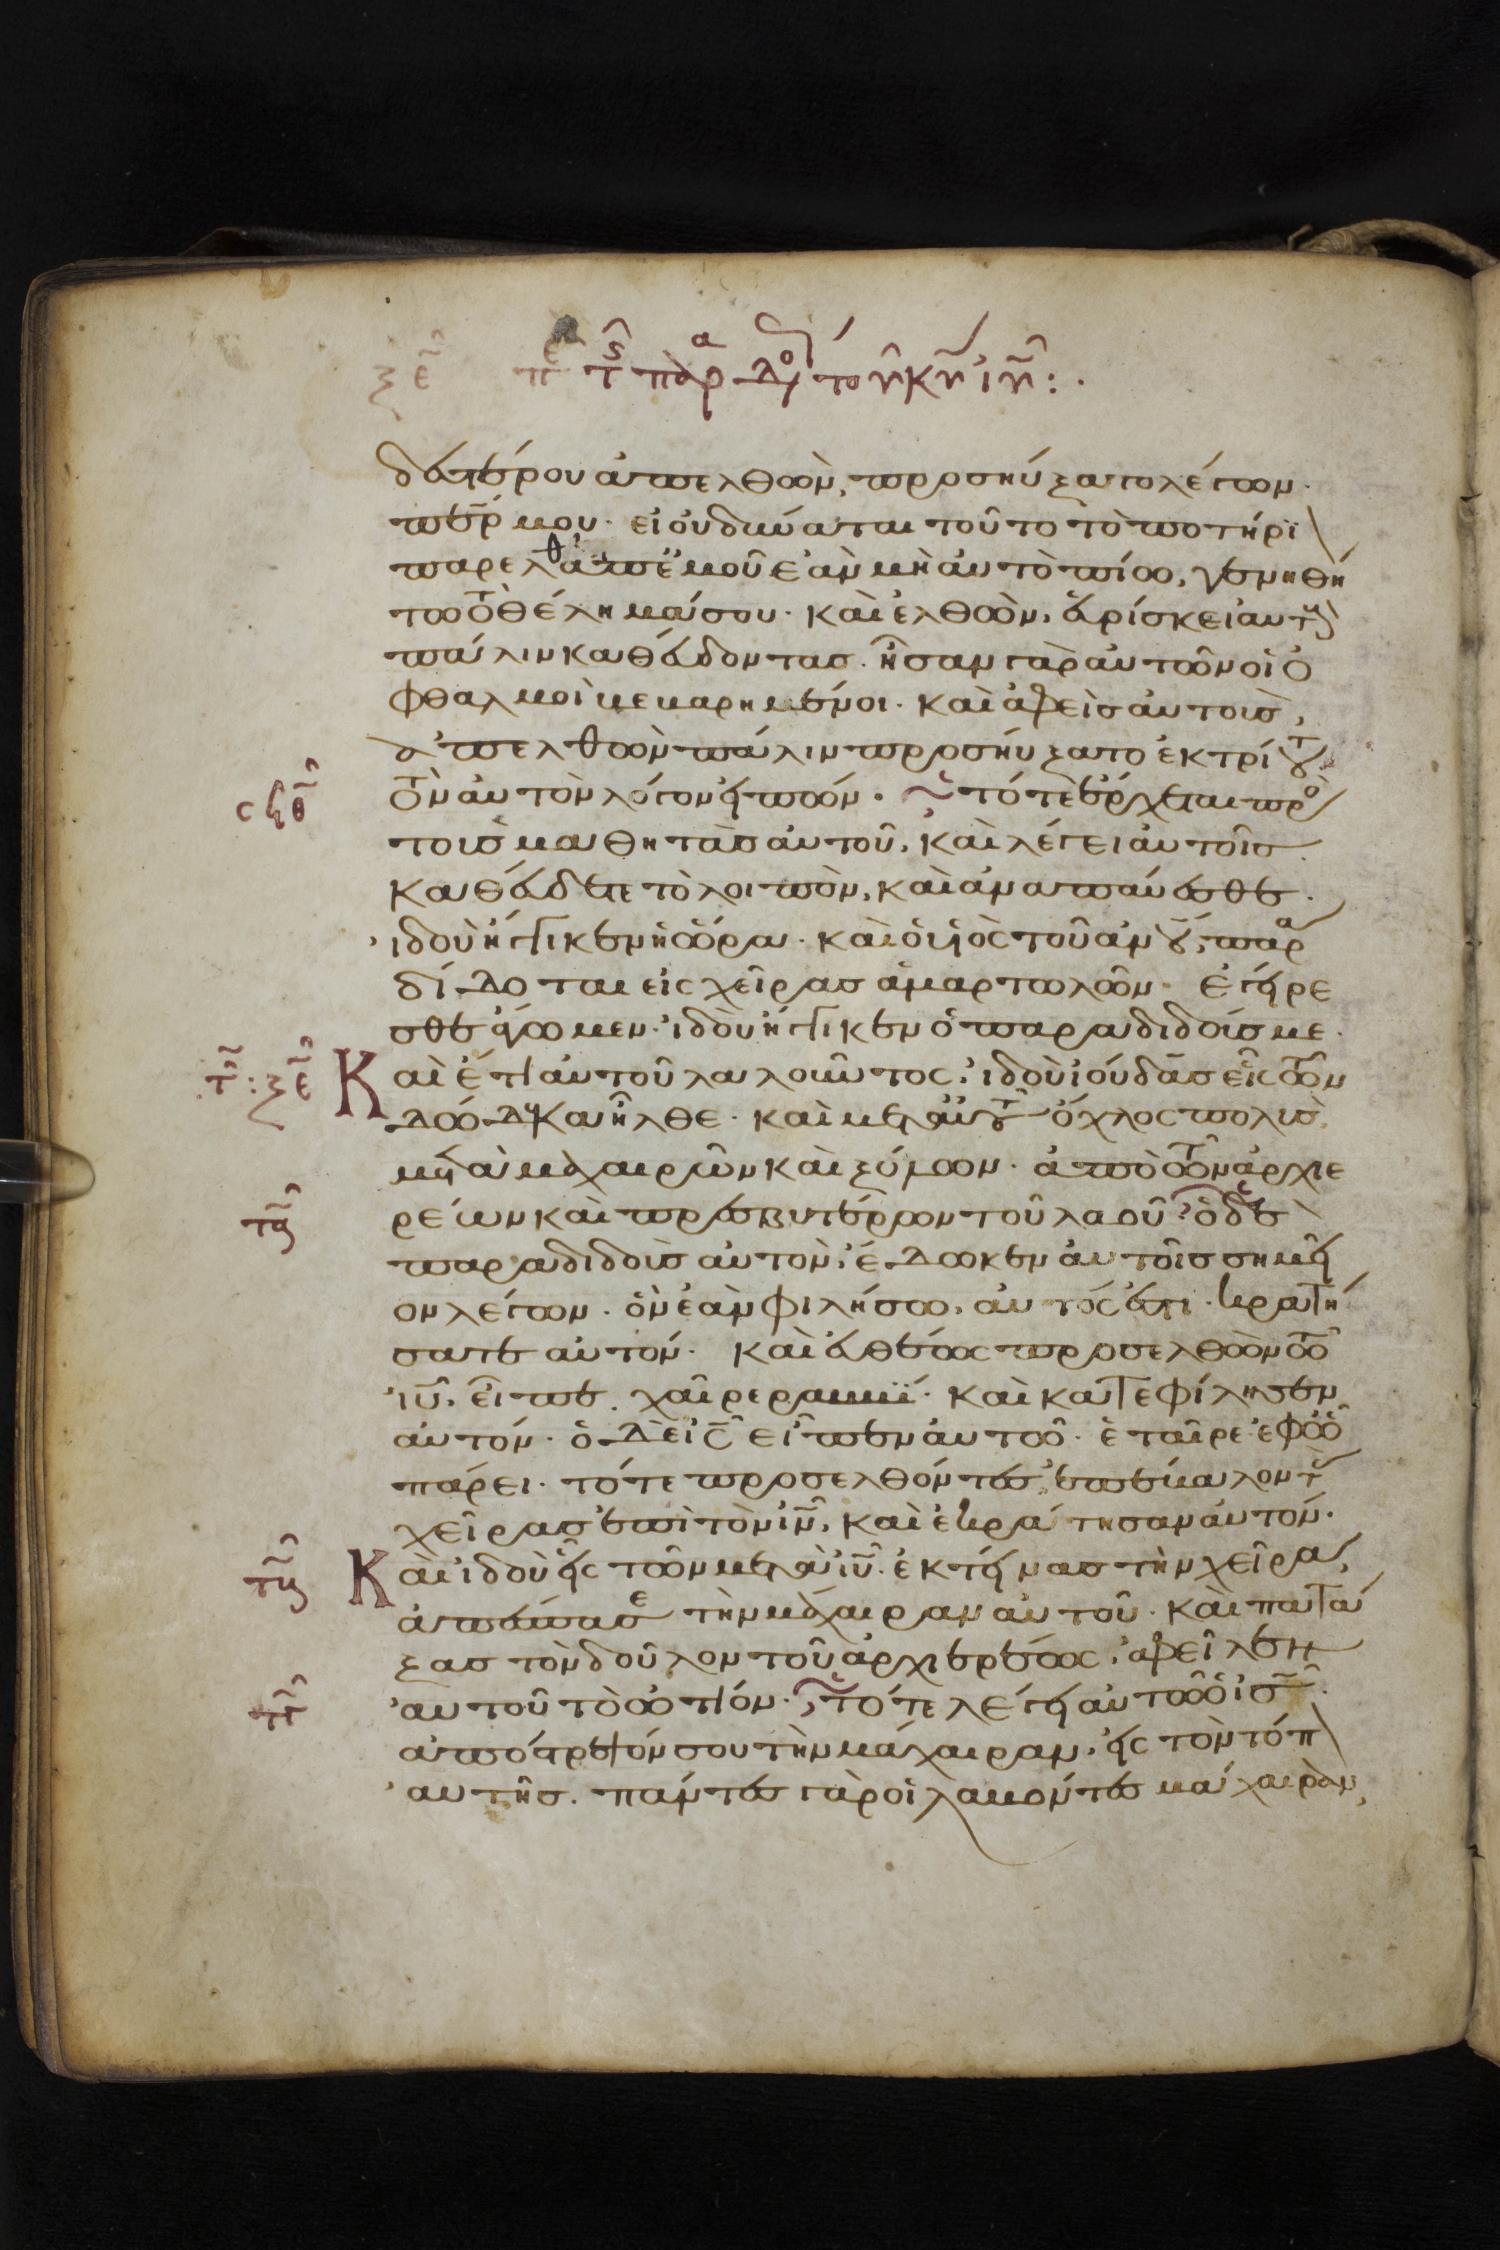 ξε περι της παραδο του κυ ιυ:·
δευτέρου ἀπελθὼν, προσηύξατο λέγων·
περ μου· εἰ οὐ δύναται τοῦτο τὸ ποτήρι
παρελθ ἀπ' ἐμοῦ ἐὰν μὴ αὐτὸ πίω, γενηθή
τω τὸ θέλημά σου· καὶ ἐλθὼν, εὑρίσκει αυτους
πάλιν καθεύδοντας· ἦσαν γὰρ αὐτῶν οἱ ὀ
φθαλμοὶ βεβαρημένοι· καὶ ἀφεὶς αὐτοὺς,
ἀπελθὼν πάλιν προσηύξατο ἐκ τρίτου
τὸν αὐτὸν λόγον εἰπών· τότε ἔρχεται προς
σϟθ
τοὺς μαθητὰς αὐτοῦ, καὶ λέγει αὐτοῖς·
καθεύδετε τὸ λοιπὸν, καὶ ἀναπαύεσθε·
ἰδοὺ ἤγγικεν ἡ ὥρα· καὶ ὁ υἱὸς τοῦ ἀνου, παρα
δίδοται εἰς χεῖρας ἁμαρτωλῶν· ἐγείρε
σθε ἄγωμεν· ἰδοὺ ἤγγικεν ὁ παραδιδούς με·
τ: ξε Καὶ ἔτι αὐτοῦ λαλοῦντος, ἰδοὺ ἰούδας εἷς τῶν
δώδεκα ἦλθε· καὶ μετ' αὐτοῦ ὄχλος πολὺς
μετὰ μαχαιρῶν καὶ ξύλων· ἀπὸ τῶν ἀρχιε
τα ρέων καὶ πρεσβυτέρων τοῦ λαοῦ· ὁ δὲ
παραδιδοὺς αὐτὸν, ἔδωκεν αὐτοῖς σημεῖ
ον λέγων· ὃν ἐὰν φιλήσω, αὐτός ἐστι· κρατή
σατε αὐτόν· καὶ εὐθέως προσελθὼν τῶ
ιυ, εἶπε· χαῖρε ραββί· καὶ κατεφίλησεν
αὐτόν· ὁ δὲ ις εἶπεν αὐτῶ· ἑταῖρε ἐφ' ὧ
πάρει· τότε προσελθόντες, ἐπέβαλον τας
χεῖρας ἐπὶ τὸν ιν, καὶ ἐκράτησαν αὐτόν·
τβ Καὶ ἰδοὺ εἷς τῶν μετὰ ιυ· ἐκτείνας τὴν χεῖρα,
ἀπέσπασε τὴν μάχαιραν αὐτοῦ· καὶ πατά
ξας τὸν δοῦλον τοῦ ἀρχιερέως, ἀφεῖλεν
τγ αὐτοῦ τὸ ὠτίον· τότε λέγει αὐτῶ ὁ ις·
ἀπόστρεψόν σου τὴν μάχαιραν, εἰς τὸν τόπ
αὐτῆς· πάντες γὰρ οἱ λαβόντες μάχαιραν,